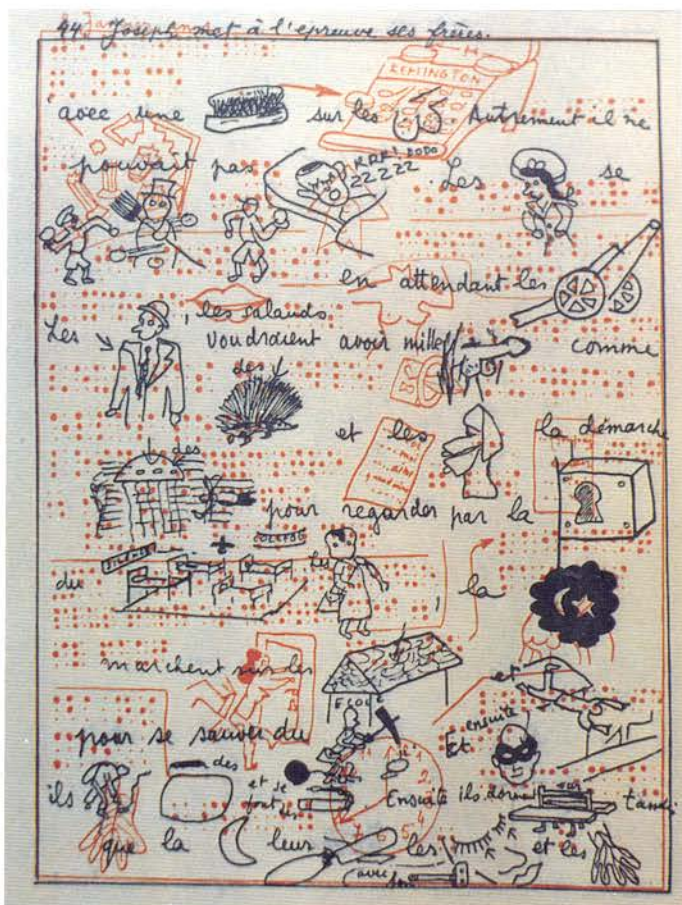 44. Joseph met à l'epreuve ses frères.
REMINGTON
avec une sur les Autrement il ne
pouvait pas RRR! DODO
ZZZZZ Les se
en attendant les
Les , les salauds
voudraient avoir mille comme
des
et les la démarche
des
pour regarder par la
du SILENCE Les , la
marchent sur les ECOLE et
pour se sauver du Et ensuite
ils des et se font des Ensuite ils dorment sur tandis
que la leur les et les
avec son